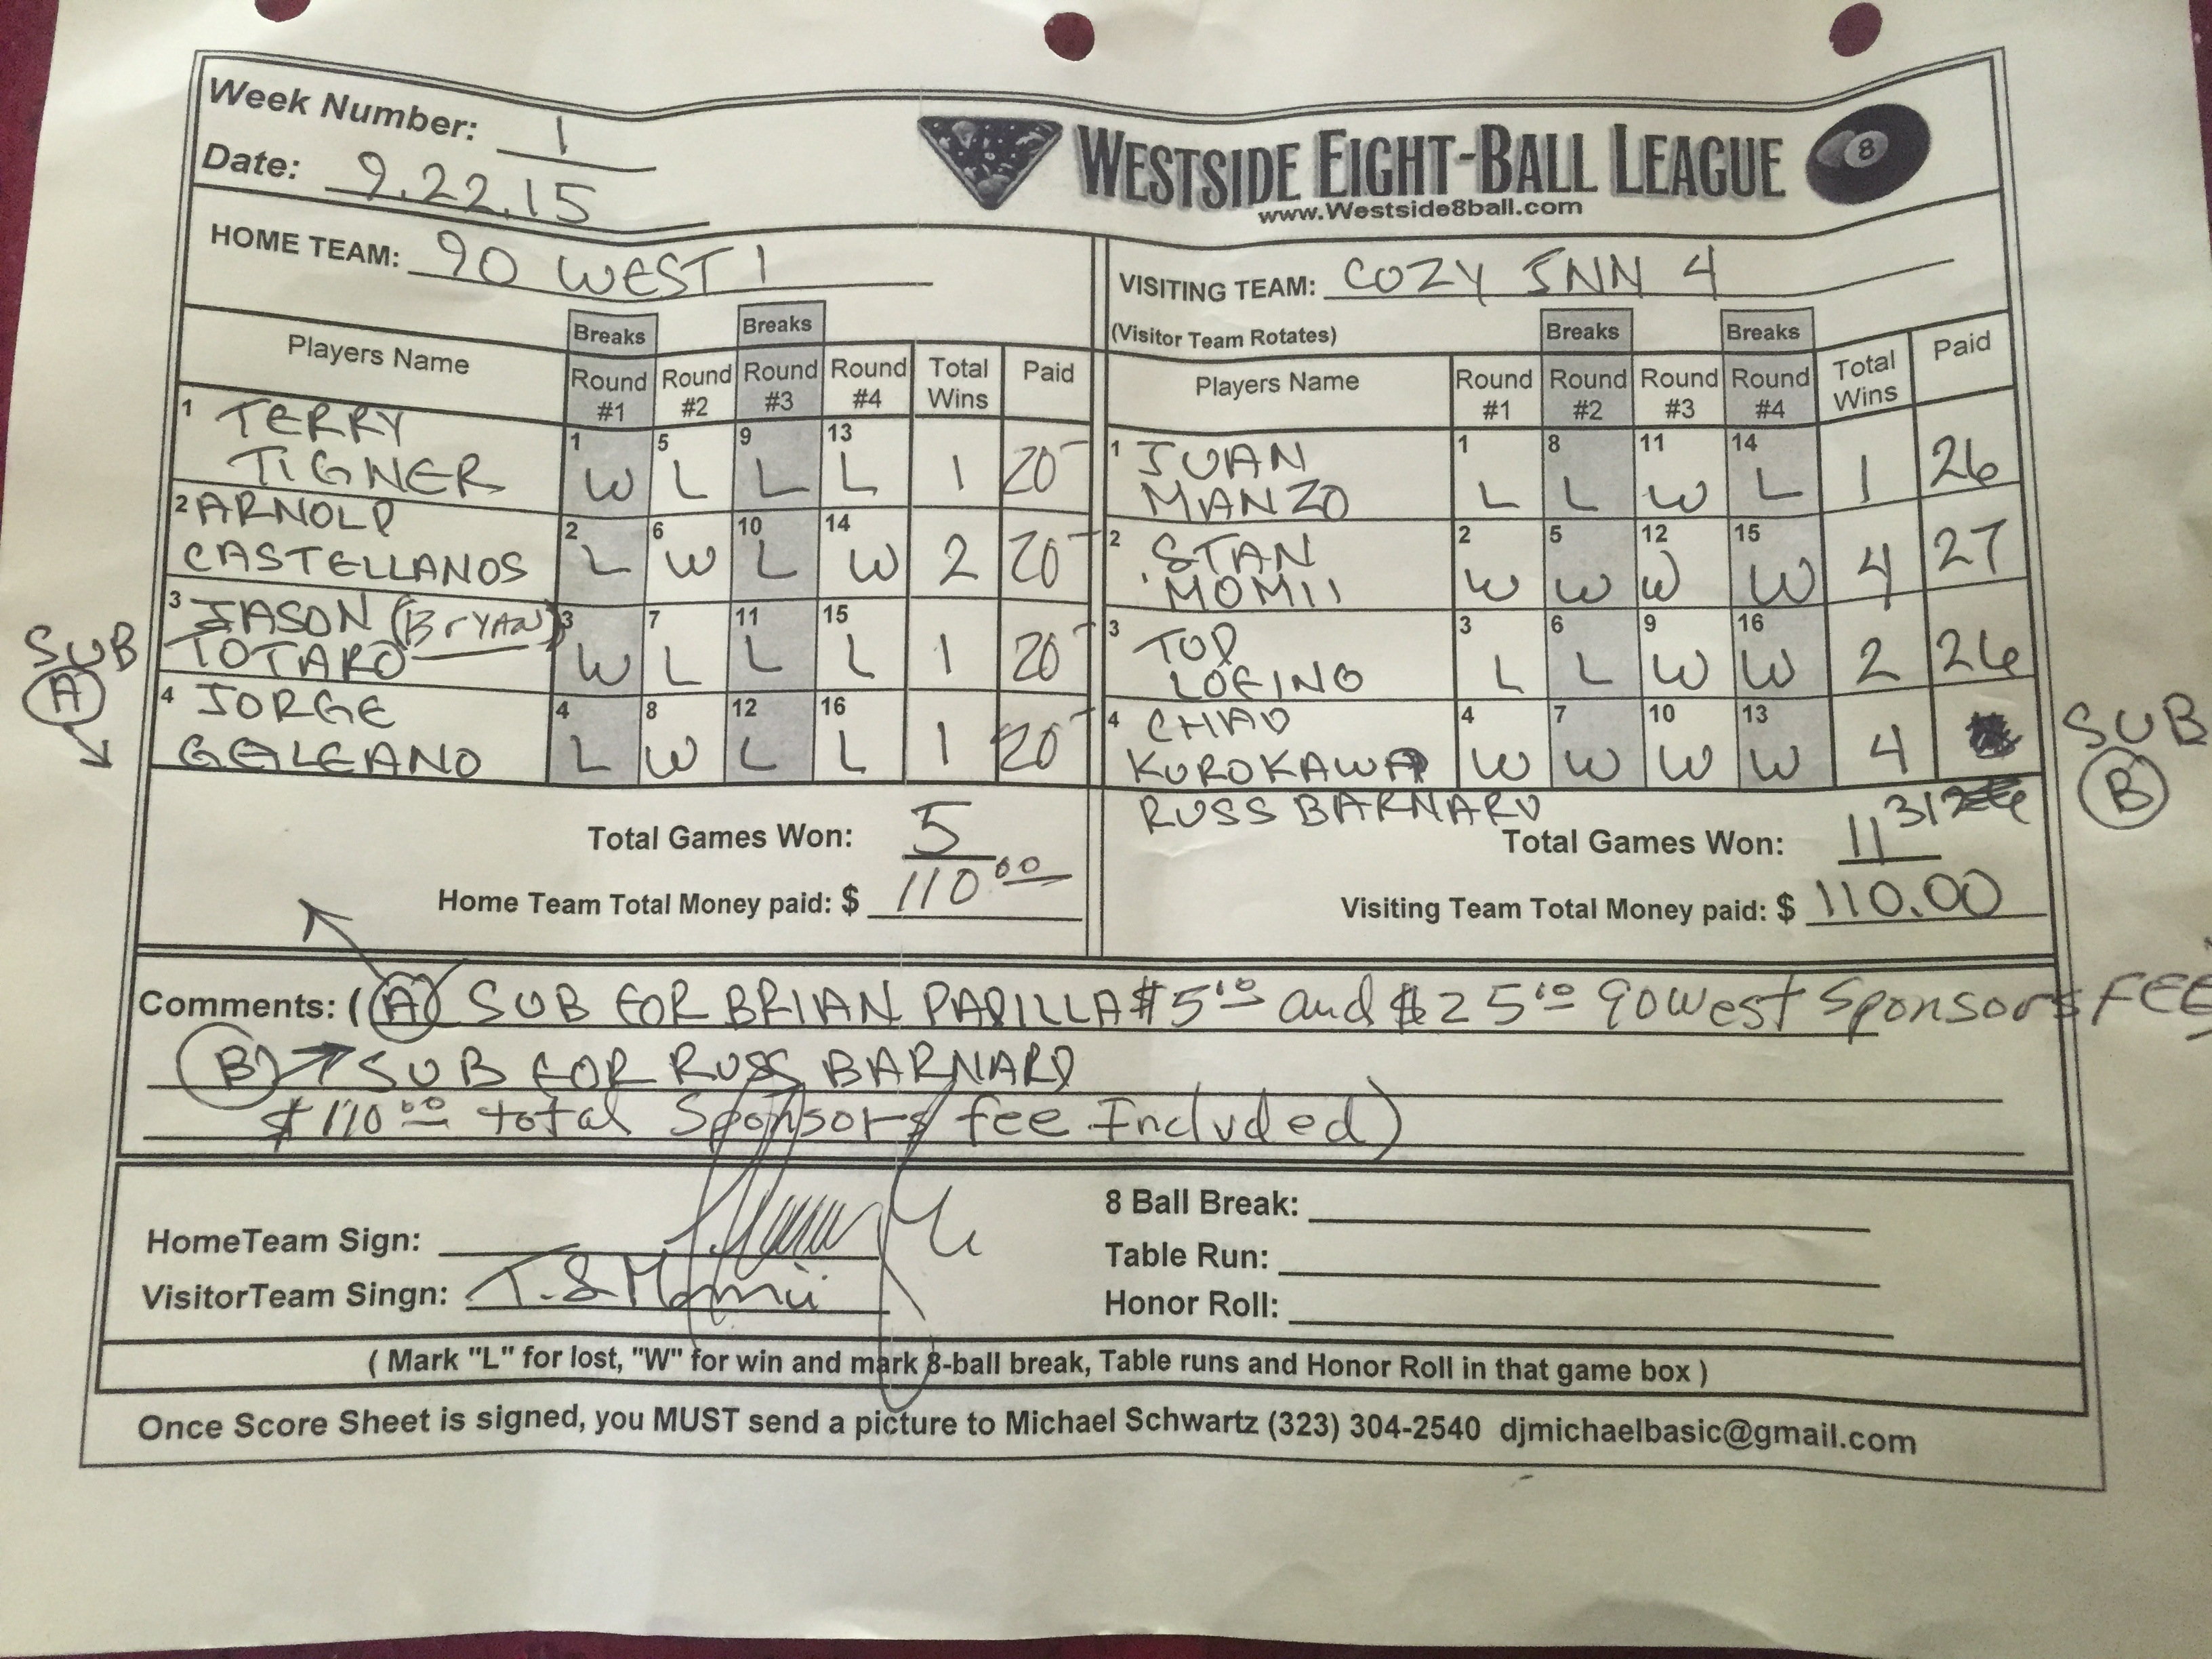 Week Number: 1
Date: 9.22.15
WESTSIDE EIGHT-BALL LEAGUE
8
www.Westside8ball.com
HOME TEAM: 90 WEST 1
VISITING TEAM: COZY INN 4
(Visitor Team Rotates)
Breaks Breaks
Breaks Breaks
Players Name Round #1 Round #2 Round #3 Round #4 Total Wins Paid
1 TERRY TIGNER 1 W 5 L 9 L 13 L 1 20-
2 ARNOLD CASTELLANOS 2 L 6 W 10 L 14 W 2 20-
SUB A
3 JASON (BrYAN) TOTARO 3 W 7 L 11 L 15 L 1 20-
4 JORGE GALEANO 4 L 8 W 12 L 16 L 1 20-
Players Name Round #1 Round #2 Round #3 Round #4 Total Wins Paid
1 JUAN MANZO 1 L 8 L 11 W 14 L 1 26
2 STAN MOMII 2 W 5 W 12 W 15 W 4 27
3 TOD LOFING 3 L 6 L 9 W 16 W 2 26
4 CHAD KUROKAWA 4 W 7 W 10 W 13 W 4
SUB B
RUSS BARNARD 31
Total Games Won: 5
Home Team Total Money paid: $ 110 00
Total Games Won: 11
Visiting Team Total Money paid: $ 110.00
Comments: (A) SUB FOR BRIAN PADILLA $5 00 and $25 00 90 west Sponsors FEE
B) → SUB FOR RUSS BARNARD
$110 00 total Sponsors fee Included)
HomeTeam Sign:
VisitorTeam Singn: T. S Momii
8 Ball Break:
Table Run:
Honor Roll:
( Mark "L" for lost, "W" for win and mark 8-ball break, Table runs and Honor Roll in that game box )
Once Score Sheet is signed, you MUST send a picture to Michael Schwartz (323) 304-2540 djmichaelbasic@gmail.com